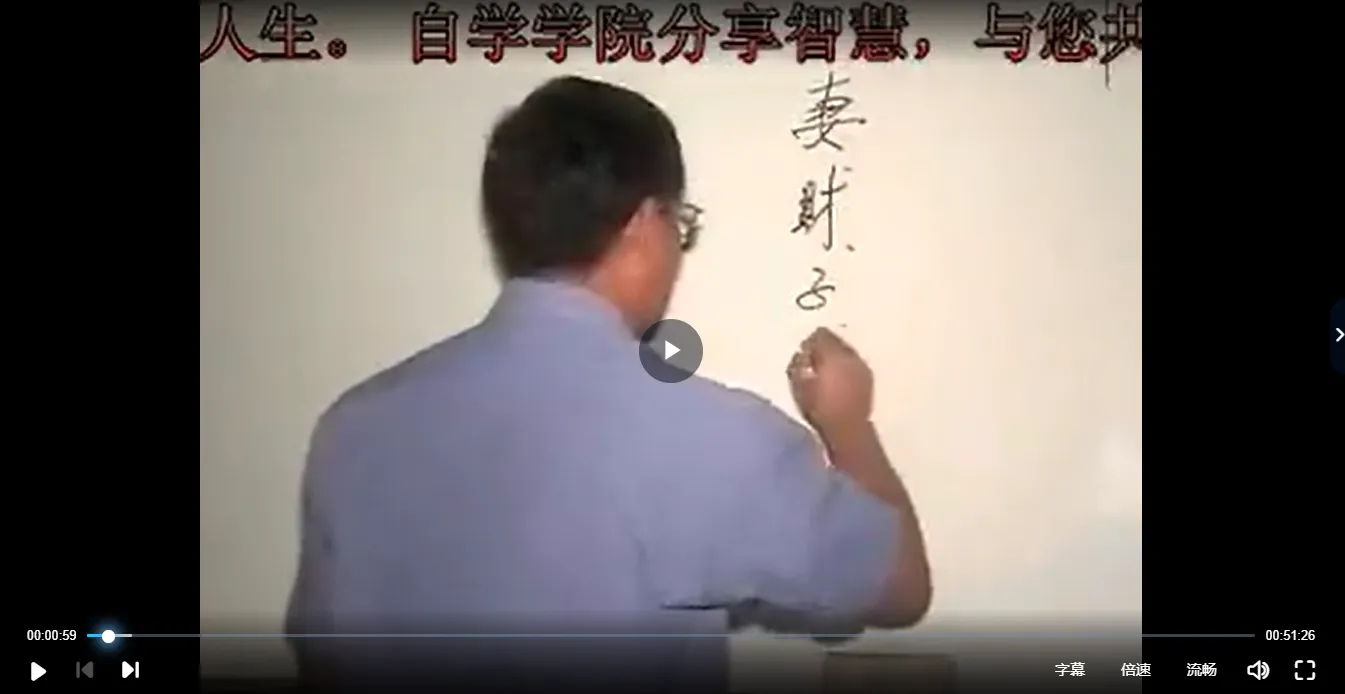 人生。 自学学院分享智慧，与您共
妻
财、
子
00:00:59
00:51:26
字幕
倍速
流畅